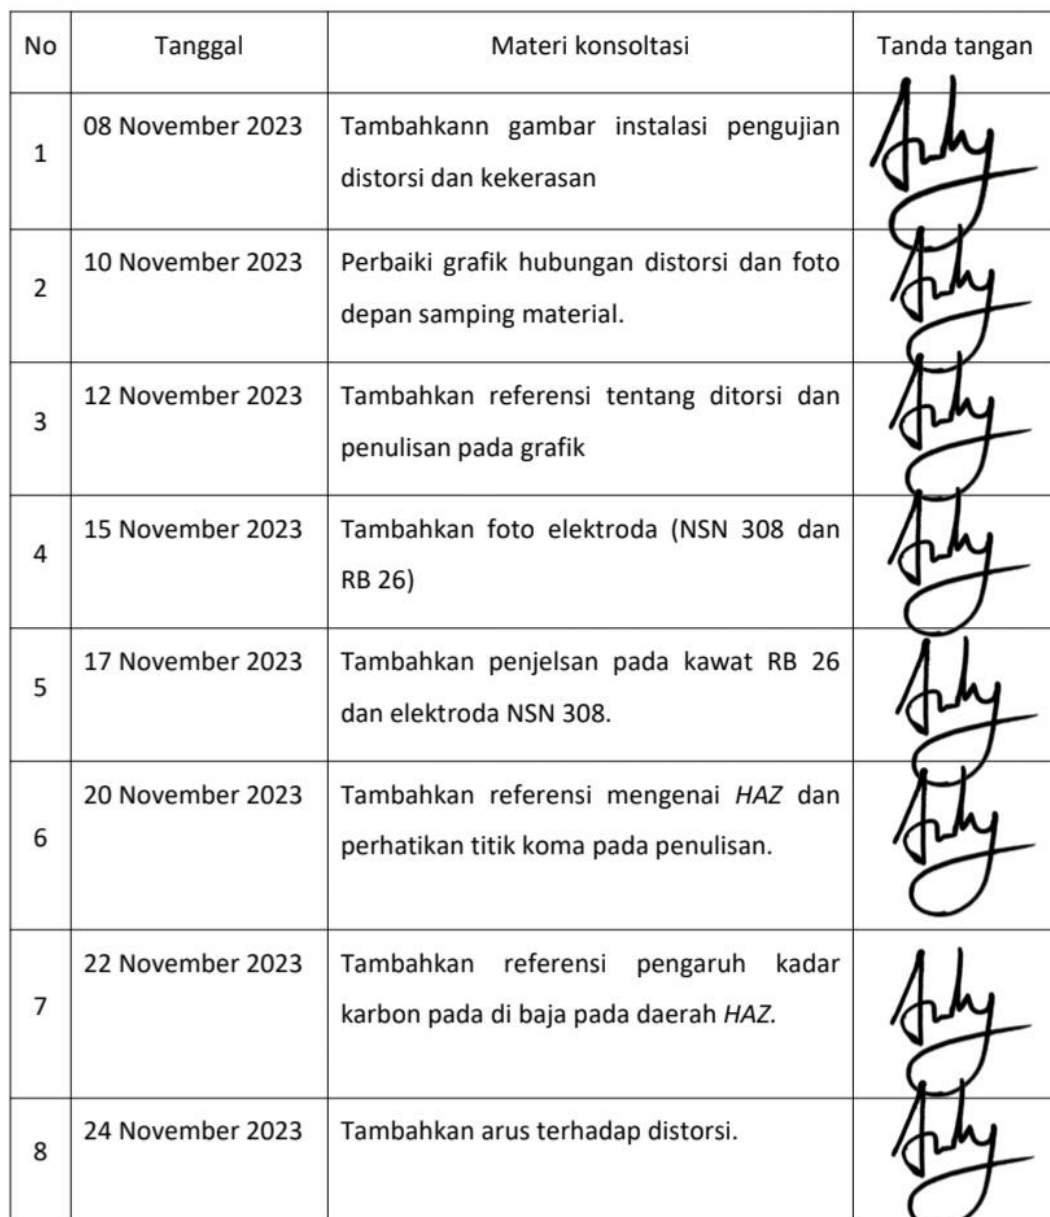 No Tanggal Materi konsoltasi Tanda tangan
1 08 November 2023 Tambahkann gambar instalasi pengujian
distorsi dan kekerasan
2 10 November 2023 Perbaiki grafik hubungan distorsi dan foto
depan samping material.
3 12 November 2023 Tambahkan referensi tentang ditorsi dan
penulisan pada grafik
4 15 November 2023 Tambahkan foto elektroda (NSN 308 dan
RB 26)
5 17 November 2023 Tambahkan penjelsan pada kawat RB 26
dan elektroda NSN 308.
6 20 November 2023 Tambahkan referensi mengenai HAZ dan
perhatikan titik koma pada penulisan.
7 22 November 2023 Tambahkan referensi pengaruh kadar
karbon pada di baja pada daerah HAZ.
8 24 November 2023 Tambahkan arus terhadap distorsi.